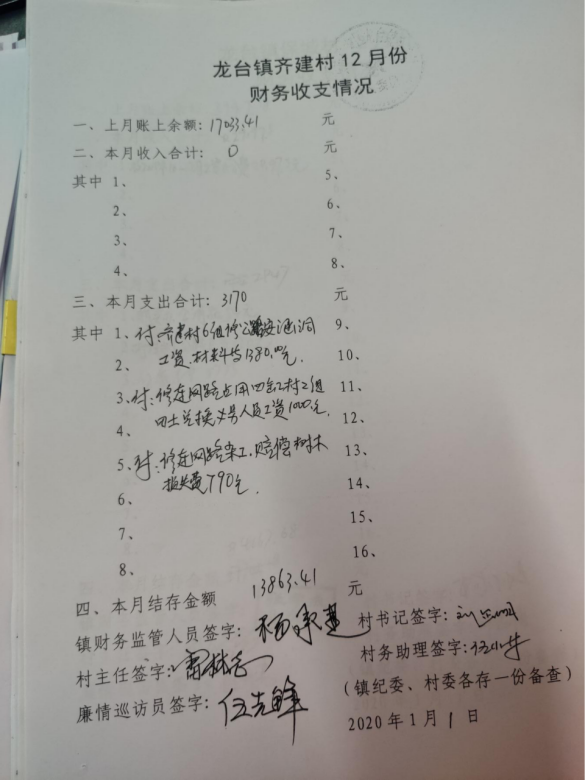 龙台镇齐建村12月份
财务收支情况
一、上月账上余额：17033.41 元
二、本月收入合计： 0 元
其中 1、 5、
2、 6、
3、 7、
4、 8、
三、本月支出合计：3170 元
其中 1、付：齐建村6组修公路安涵洞 9、
2、工资、材料等1380.00元. 10、
3、付：修连网路占用四缸村2组 11、
4、田土兑换 人员工资1000元. 12、
5、付：修连网路 工.赔偿树木 13、
6、损失费790元. 14、
7、 15、
8、 16、
四、本月结存金额 13863.41 元
镇财务监管人员签字：杨承 村书记签字：
村主任签字： 村务助理签字：
（镇纪委、村委各存一份备查）
廉情巡访员签字：任先锋
2020年1月1日